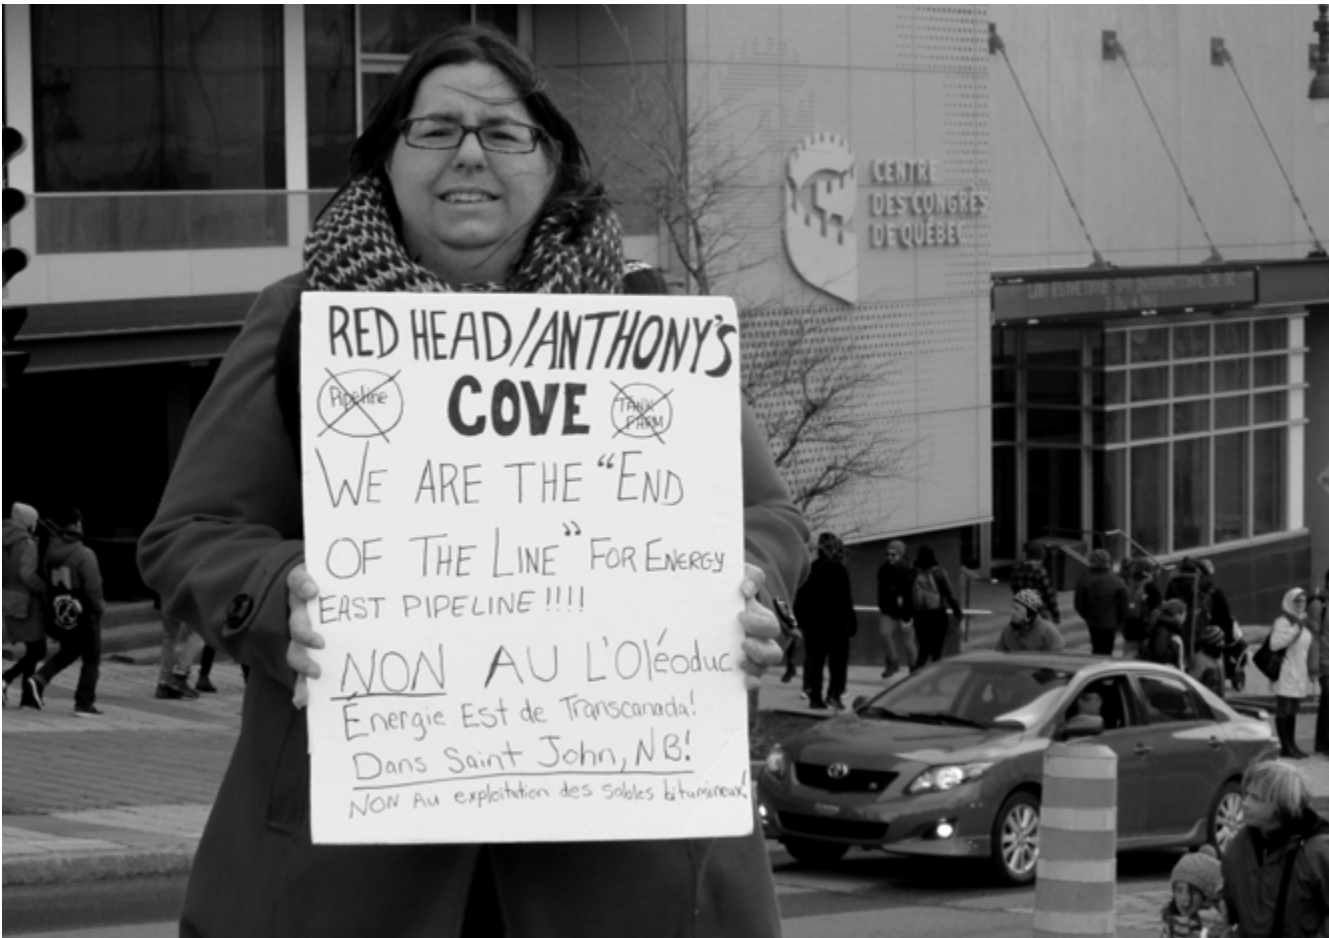 CENTRE
DES CONGRÈS
DE QUÉBEC
RED HEAD/ANTHONY'S
COVE
Pipeline
TANK
FARM
WE ARE THE "END
OF THE LINE" FOR ENERGY
EAST PIPELINE !!!!
NON AU L'Oléoduc
Énergie Est de Transcanada!
Dans Saint John, NB!
NON Au exploitation des sables bitumineux!